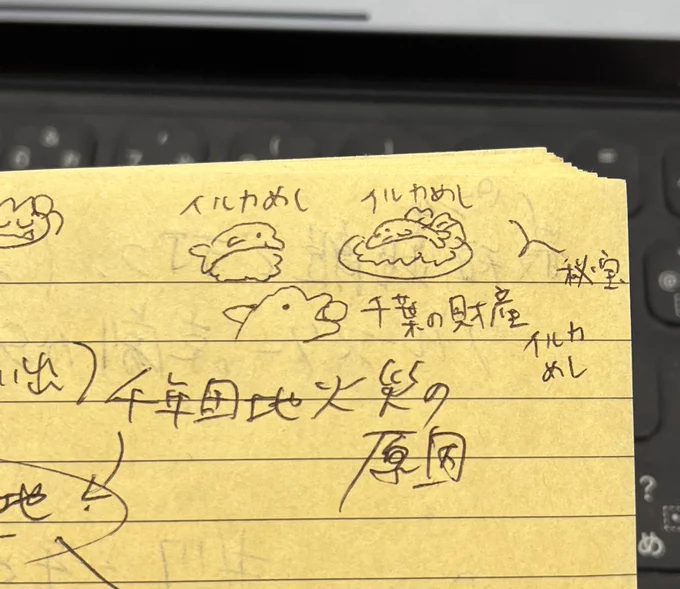 イルカめし
イルカめし
秘宝
イルカ
めし
千葉の財産
出)
千年団地火災の
原因
地
?
め